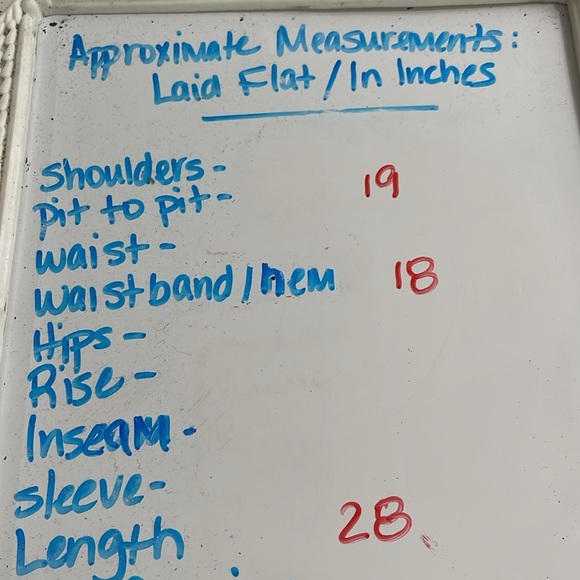 Approximate Measurements:
Laid Flat / In Inches
Shoulders -
pit to pit - 19
waist -
waistband / hem 18
Hips -
Rise -
Inseam -
sleeve -
Length 28